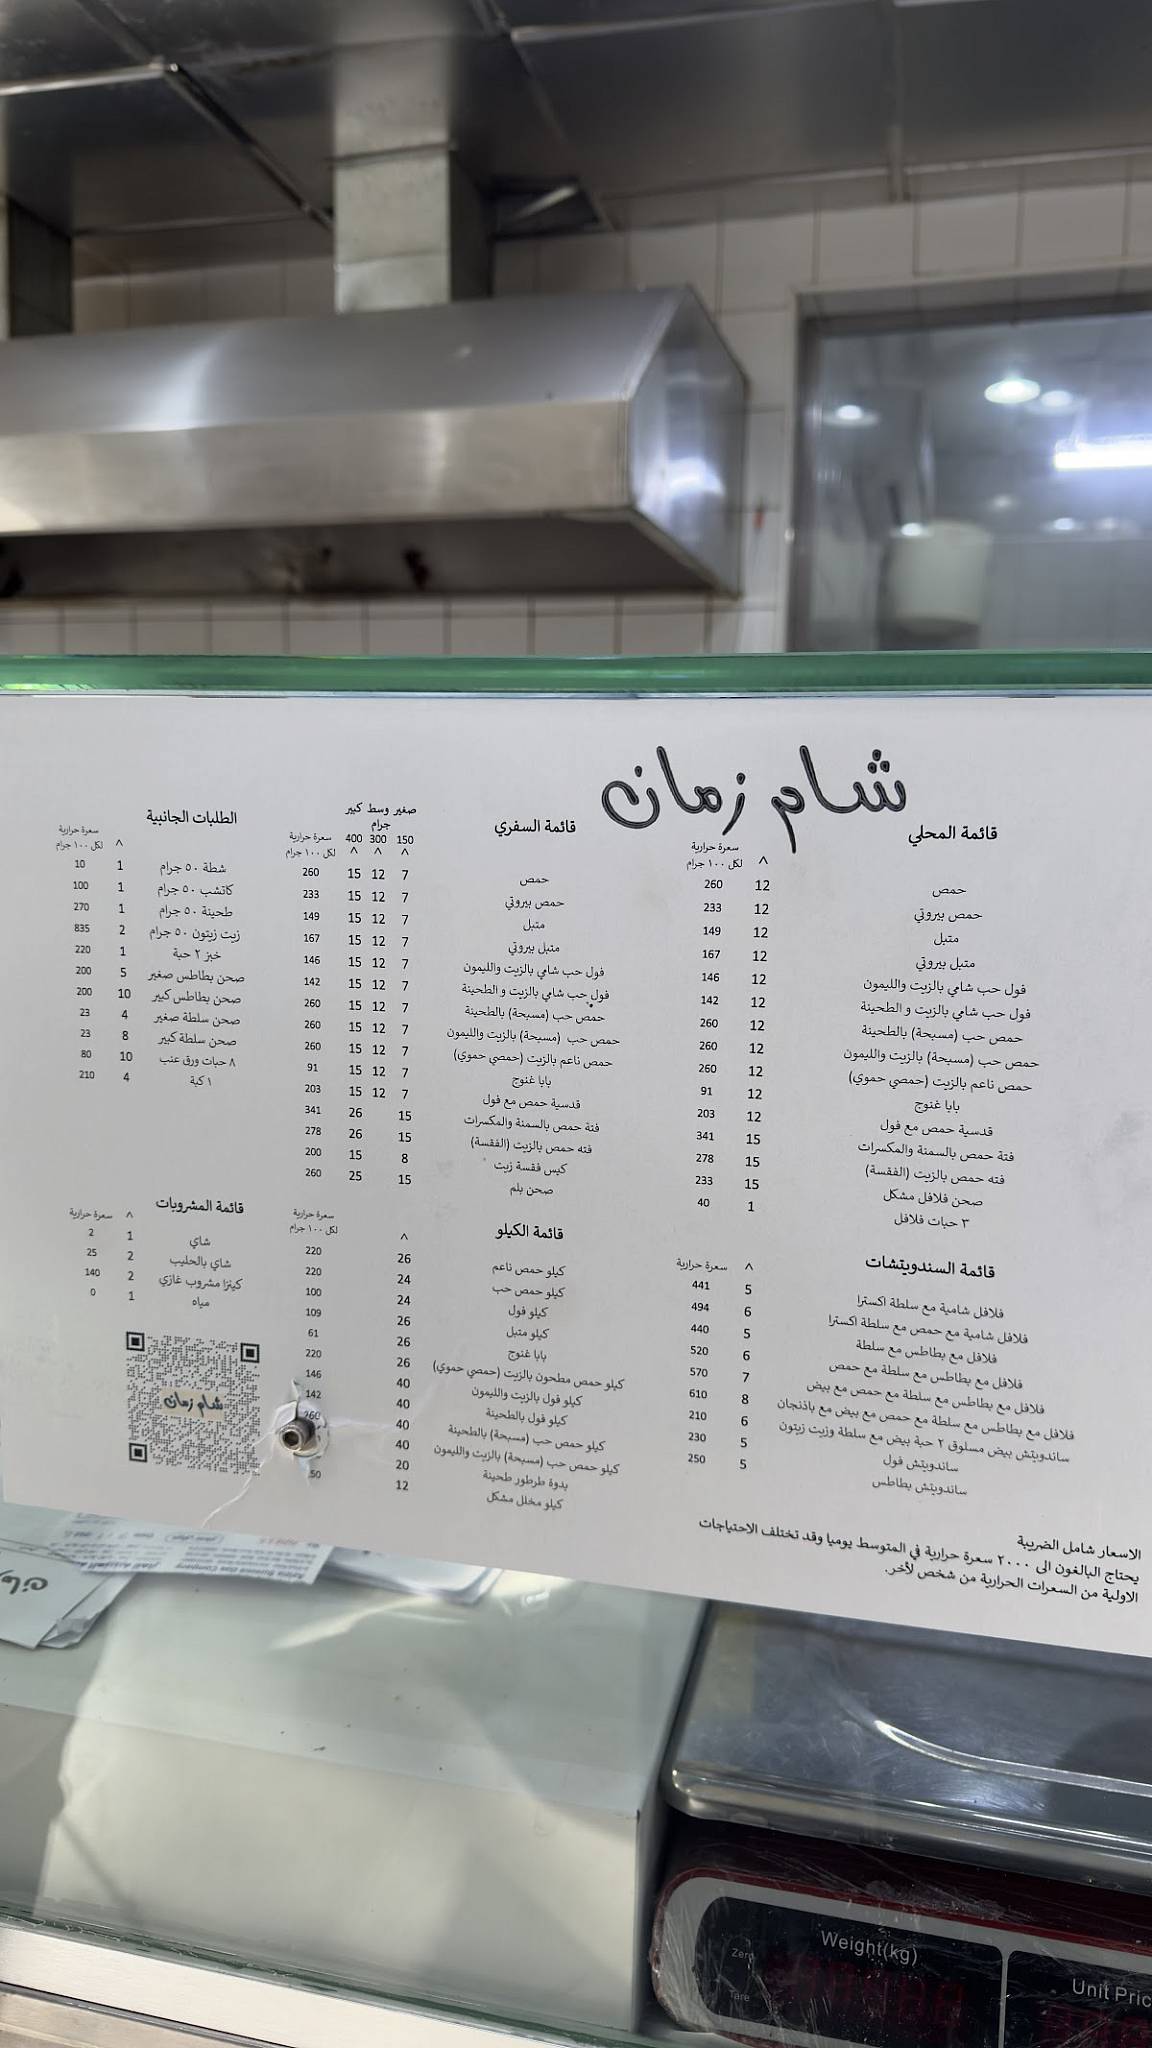 شام زمان
قائمة المحلي
سعرة حرارية
لكل ١٠٠ جرام
حمص 12 260
حمص بيروتي 12 233
متبل 12 149
متبل بيروتي 12 167
فول حب شامي بالزيت والليمون 12 146
فول حب شامي بالزيت و الطحينة 12 142
حمص حب (مسبحة) بالطحينة 12 260
حمص حب (مسبحة) بالزيت والليمون 12 260
حمص ناعم بالزيت (حمصي حموي) 12 260
بابا غنوج 12 91
قدسية حمص مع فول 12 203
فتة حمص بالسمنة والمكسرات 15 341
فته حمص بالزيت (الفقسة) 15 278
صحن فلافل مشكل 15 233
٣ حبات فلافل 1 40
قائمة السندويتشات
سعرة حرارية
فلافل شامية مع سلطة اكسترا 5 441
فلافل شامية مع حمص مع سلطة اكسترا 6 494
فلافل مع بطاطس مع سلطة 5 440
فلافل مع بطاطس مع سلطة مع حمص 6 520
فلافل مع بطاطس مع سلطة مع حمص مع بيض 7 570
فلافل مع بطاطس مع سلطة مع حمص مع بيض مع باذنجان 8 610
ساندويتش بيض مسلوق ٢ حبة بيض مع سلطة وزيت زيتون 6 210
ساندويتش فول 5 230
ساندويتش بطاطس 5 250
قائمة السفري
صغير وسط كبير
جرام
150 300 400
سعرة حرارية
لكل ١٠٠ جرام
حمص 7 12 15 260
حمص بيروتي 7 12 15 233
متبل 7 12 15 149
متبل بيروتي 7 12 15 167
فول حب شامي بالزيت والليمون 7 12 15 146
فول حب شامي بالزيت و الطحينة 7 12 15 142
حمص حب (مسبحة) بالطحينة 7 12 15 260
حمص حب (مسبحة) بالزيت والليمون 7 12 15 260
حمص ناعم بالزيت (حمصي حموي) 7 12 15 260
بابا غنوج 7 12 15 91
قدسية حمص مع فول 7 12 15 203
فتة حمص بالسمنة والمكسرات 15 26 341
فته حمص بالزيت (الفقسة) 15 26 278
كيس فقسة زيت 8 15 200
صحن بلم 15 25 260
قائمة الكيلو
سعرة حرارية
لكل ١٠٠ جرام
كيلو حمص ناعم 26 220
كيلو حمص حب 24 220
كيلو فول 24 100
كيلو متبل 26 109
بابا غنوج 26 61
كيلو حمص مطحون بالزيت (حمصي حموي) 26 220
كيلو فول بالزيت والليمون 40 146
كيلو فول بالطحينة 40 142
كيلو حمص حب (مسبحة) بالطحينة 40 260
كيلو حمص حب (مسبحة) بالزيت والليمون 40
بدوة طرطور طحينة 20
كيلو مخلل مشكل 12
الطلبات الجانبية
سعرة حرارية
لكل ١٠٠ جرام
شطة ٥٠ جرام 1 10
كاتشب ٥٠ جرام 1 100
طحينة ٥٠ جرام 1 270
زيت زيتون ٥٠ جرام 2 835
خبز ٢ حبة 1 220
صحن بطاطس صغير 5 200
صحن بطاطس كبير 10 200
صحن سلطة صغير 4 23
صحن سلطة كبير 8 23
٨ حبات ورق عنب 10 80
١ كبة 4 210
قائمة المشروبات
سعرة حرارية
شاي 1 2
شاي بالحليب 2 25
كينزا مشروب غازي 2 140
مياه 1 0
شام زمان
الاسعار شامل الضريبة
يحتاج البالغون الى ٢٠٠٠ سعرة حرارية في المتوسط يوميا وقد تختلف الاحتياجات
الاولية من السعرات الحرارية من شخص لأخر.
Weight(kg)
Zero
Tare
Unit Pric